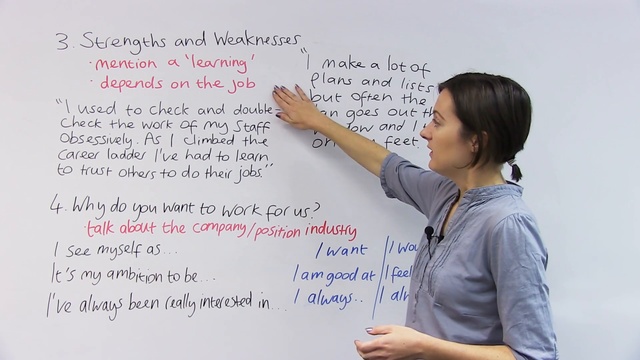 3. Strengths and Weaknesses
· mention a 'learning'
· depends on the job
"I used to check and double-
check the work of my staff
obsessively. As I climbed the
career ladder I've had to learn
to trust others to do their jobs."
"I make a lot of
plans and lists
but often the
goes out th
and I
feet.
4. Why do you want to work for us?
· talk about the company/position industry
I see myself as...
It's my ambition to be...
I've always been really interested in...
I want
I am good at
I always..
I wou
I feel
I al